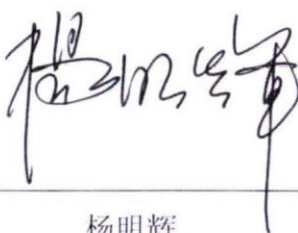 杨明辉
杨明辉